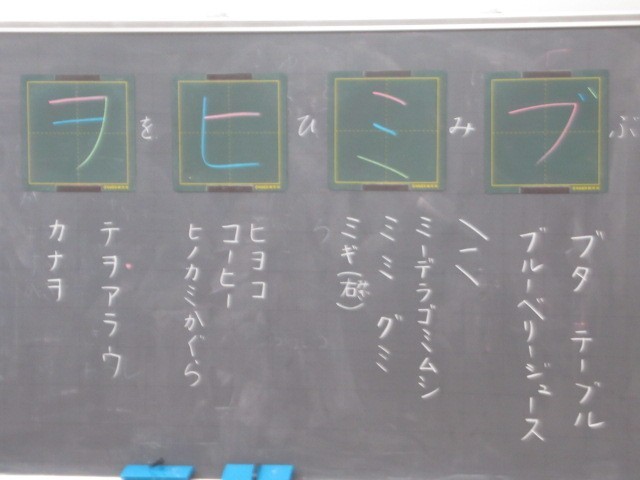 ぶ
ブ
ブタ テーブル
ブルーベリージュース
み
ミ
ミーデラゴミムシ
ミミ グミ
ミギ(右)
ひ
ヒ
ヒヨコ
コーヒー
ヒノカミかぐら
を
ヲ
テヲアラウ
カナヲ